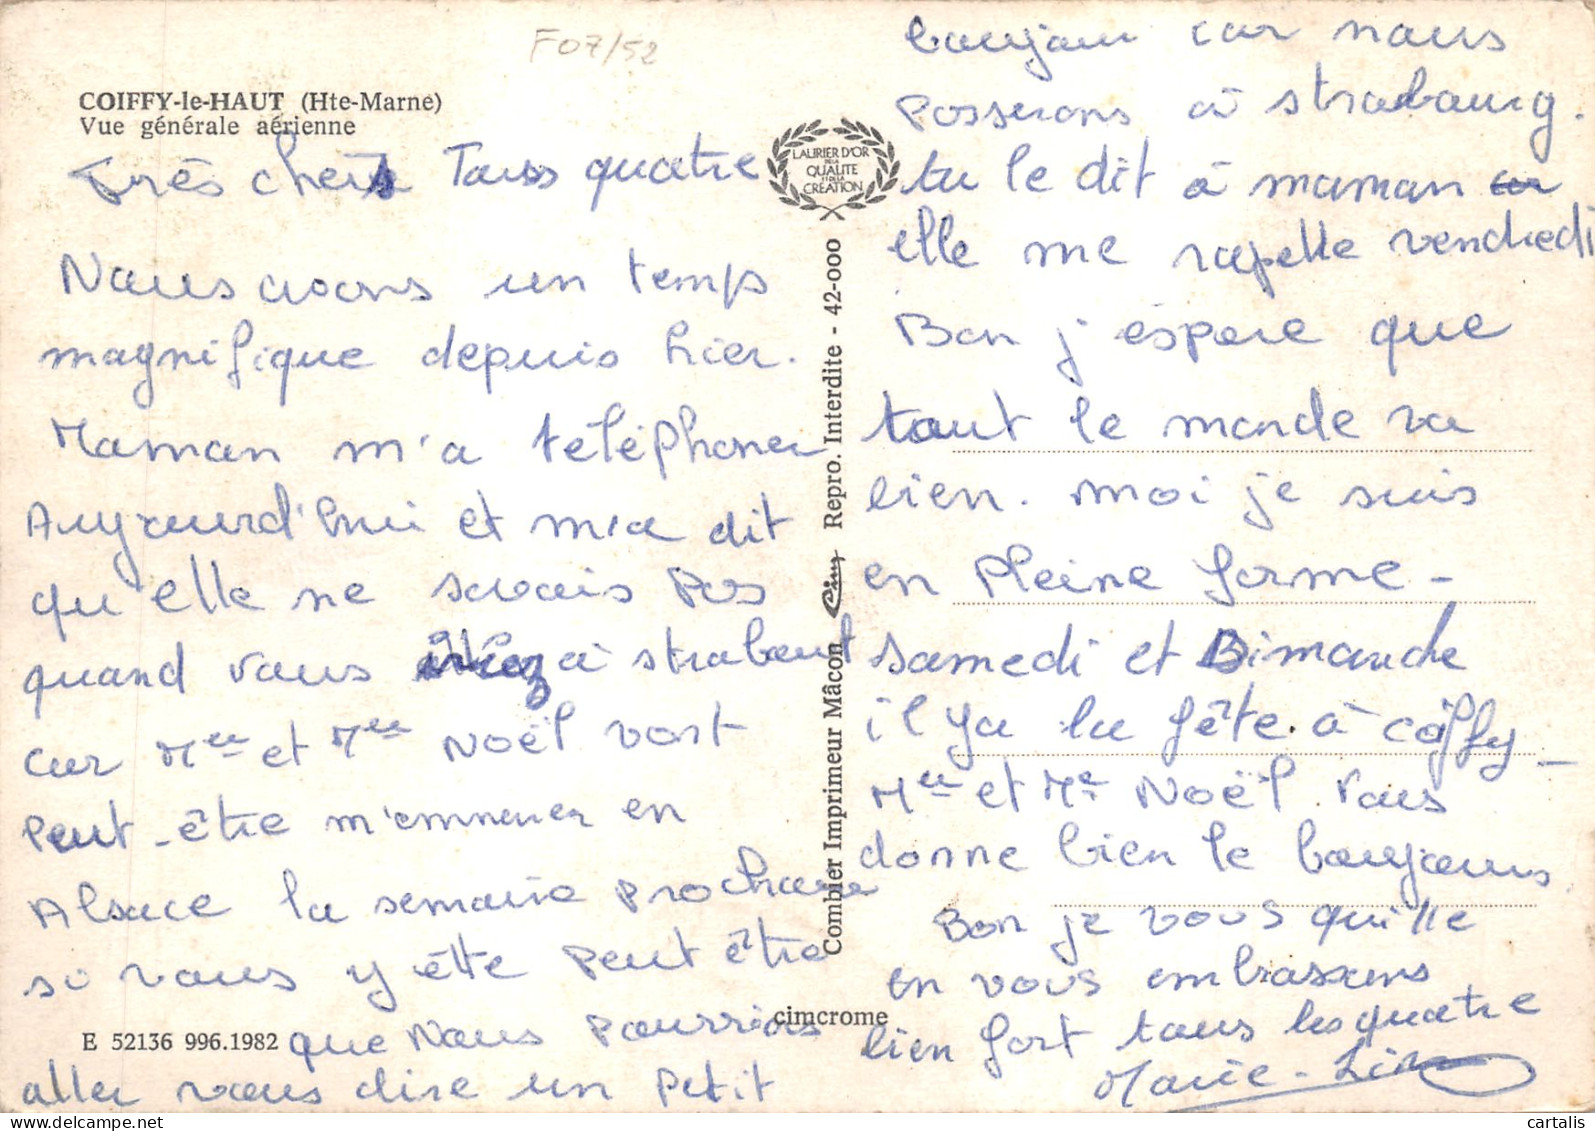 F07/52
COIFFY-le-HAUT (Hte-Marne)
Vue générale aérienne
Très chers Tous quatre
Nous avons un temps
magnifique depuis hier.
Maman m'a téléphoner
Aujourd'hui et m'a dit
qu'elle ne savais pas
quand vous à strabourt
car Mr et Mme Noël vont
peut-être m'emmener en
Alsace la semaine prochaine
si vous y ête peut être
que Nous pourrions
aller vous dire un petit
E 52136 996.1982
LAURIER D'OR
DE LA
QUALITE
ET DE LA
CRÉATION
Combier Imprimeur Mâcon Cim Repro. Interdite - 42-000
cimcrome
bonjour car nous
passerons à strabourg.
tu le dit à maman car
elle me rapelle vendredi
Bon j'éspère que
tout le monde va
bien. moi je suis
en pleine forme -
samedi et Dimanche
il ya la fête. à Coiffy -
Mr et Me Noël vous
donne bien le bonjours.
Bon je vous quitte
en vous embrassens
bien fort tous les quatre
Marie-Line
cartalis